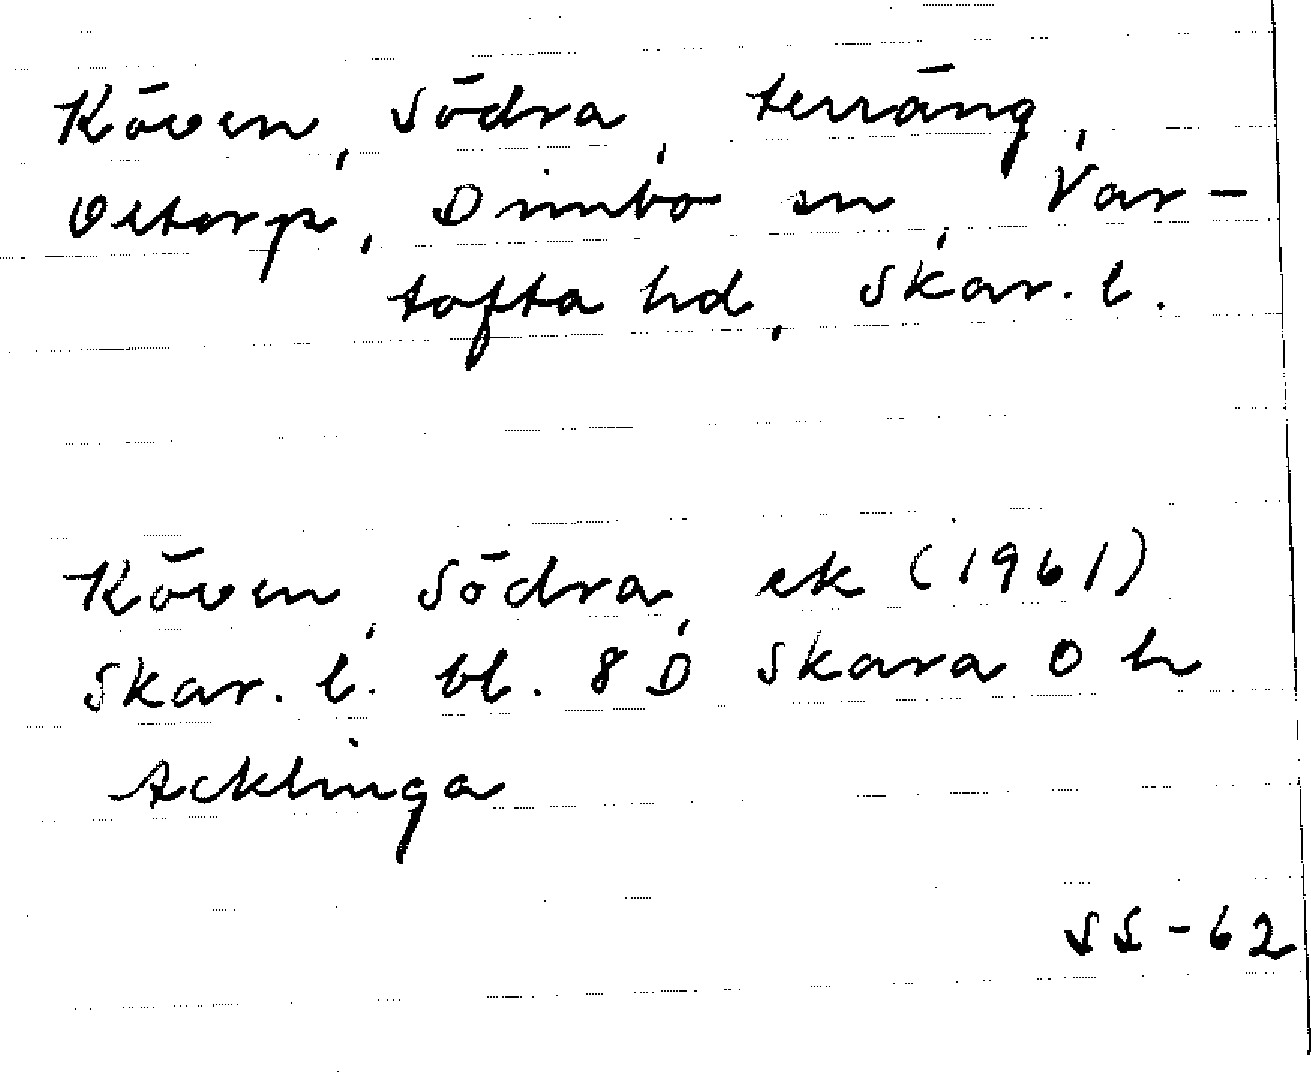 Köven, Södra, terräng,
Oltorp, Dimbo sn, Var-
tofta hd, Skar. l.
Köven, Södra, ek (1961)
Skar. l. bl. 8 D Skara O h
Acklinga
SS-62